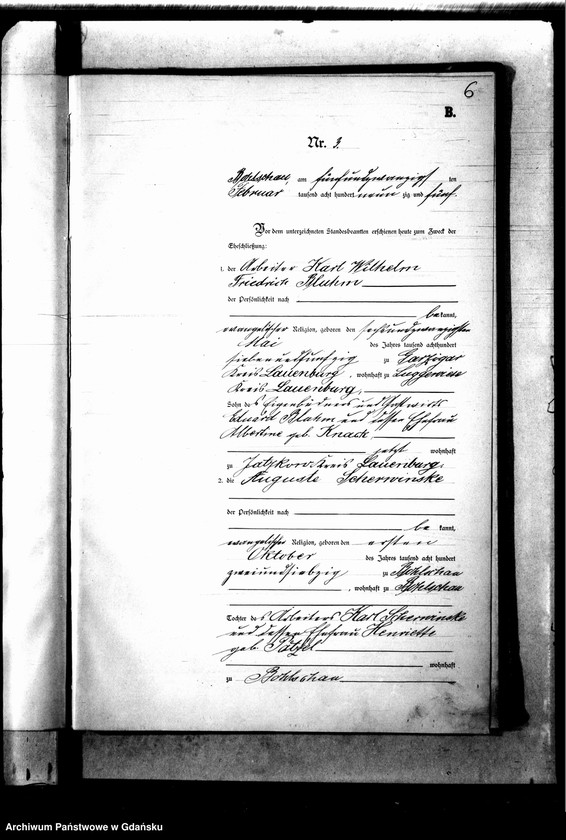 6
B.
Nr. 3.
Bohlschau, am fünfundzwanzigsten
Februar tausend acht hundert neunzig und fünf
Vor dem unterzeichneten Standesbeamten erschienen heute zum Zweck der
Eheschließung:
1. der Arbeiter Karl Wilhelm
Friedrich Bluhm
der Persönlichkeit nach
bekannt,
evangelischer Religion, geboren den sechsundzwanzigsten
Mai des Jahres tausend achthundert
siebenundfünfzig zu Garzigar
Kreis Lauenburg, wohnhaft zu Luggewiese
Kreis Lauenburg,
Sohn des Eigenbudners und Gastwirts
Eduard Bluhm und dessen Ehefrau
Albertine geb. Knack
jetzt wohnhaft
zu Jatzkow Kreis Lauenburg.
2. die Auguste Scherwinske
der Persönlichkeit nach
bekannt,
evangelischer Religion, geboren den ersten
Oktober des Jahres tausend acht hundert
zweiundsiebzig zu Bohlschau
, wohnhaft zu Bohlschau
Tochter des Arbeiters Karl Scherwinske
und dessen Ehefrau Henriette
geb.
wohnhaft
zu Bohlschau
Archiwum Państwowe w Gdańsku